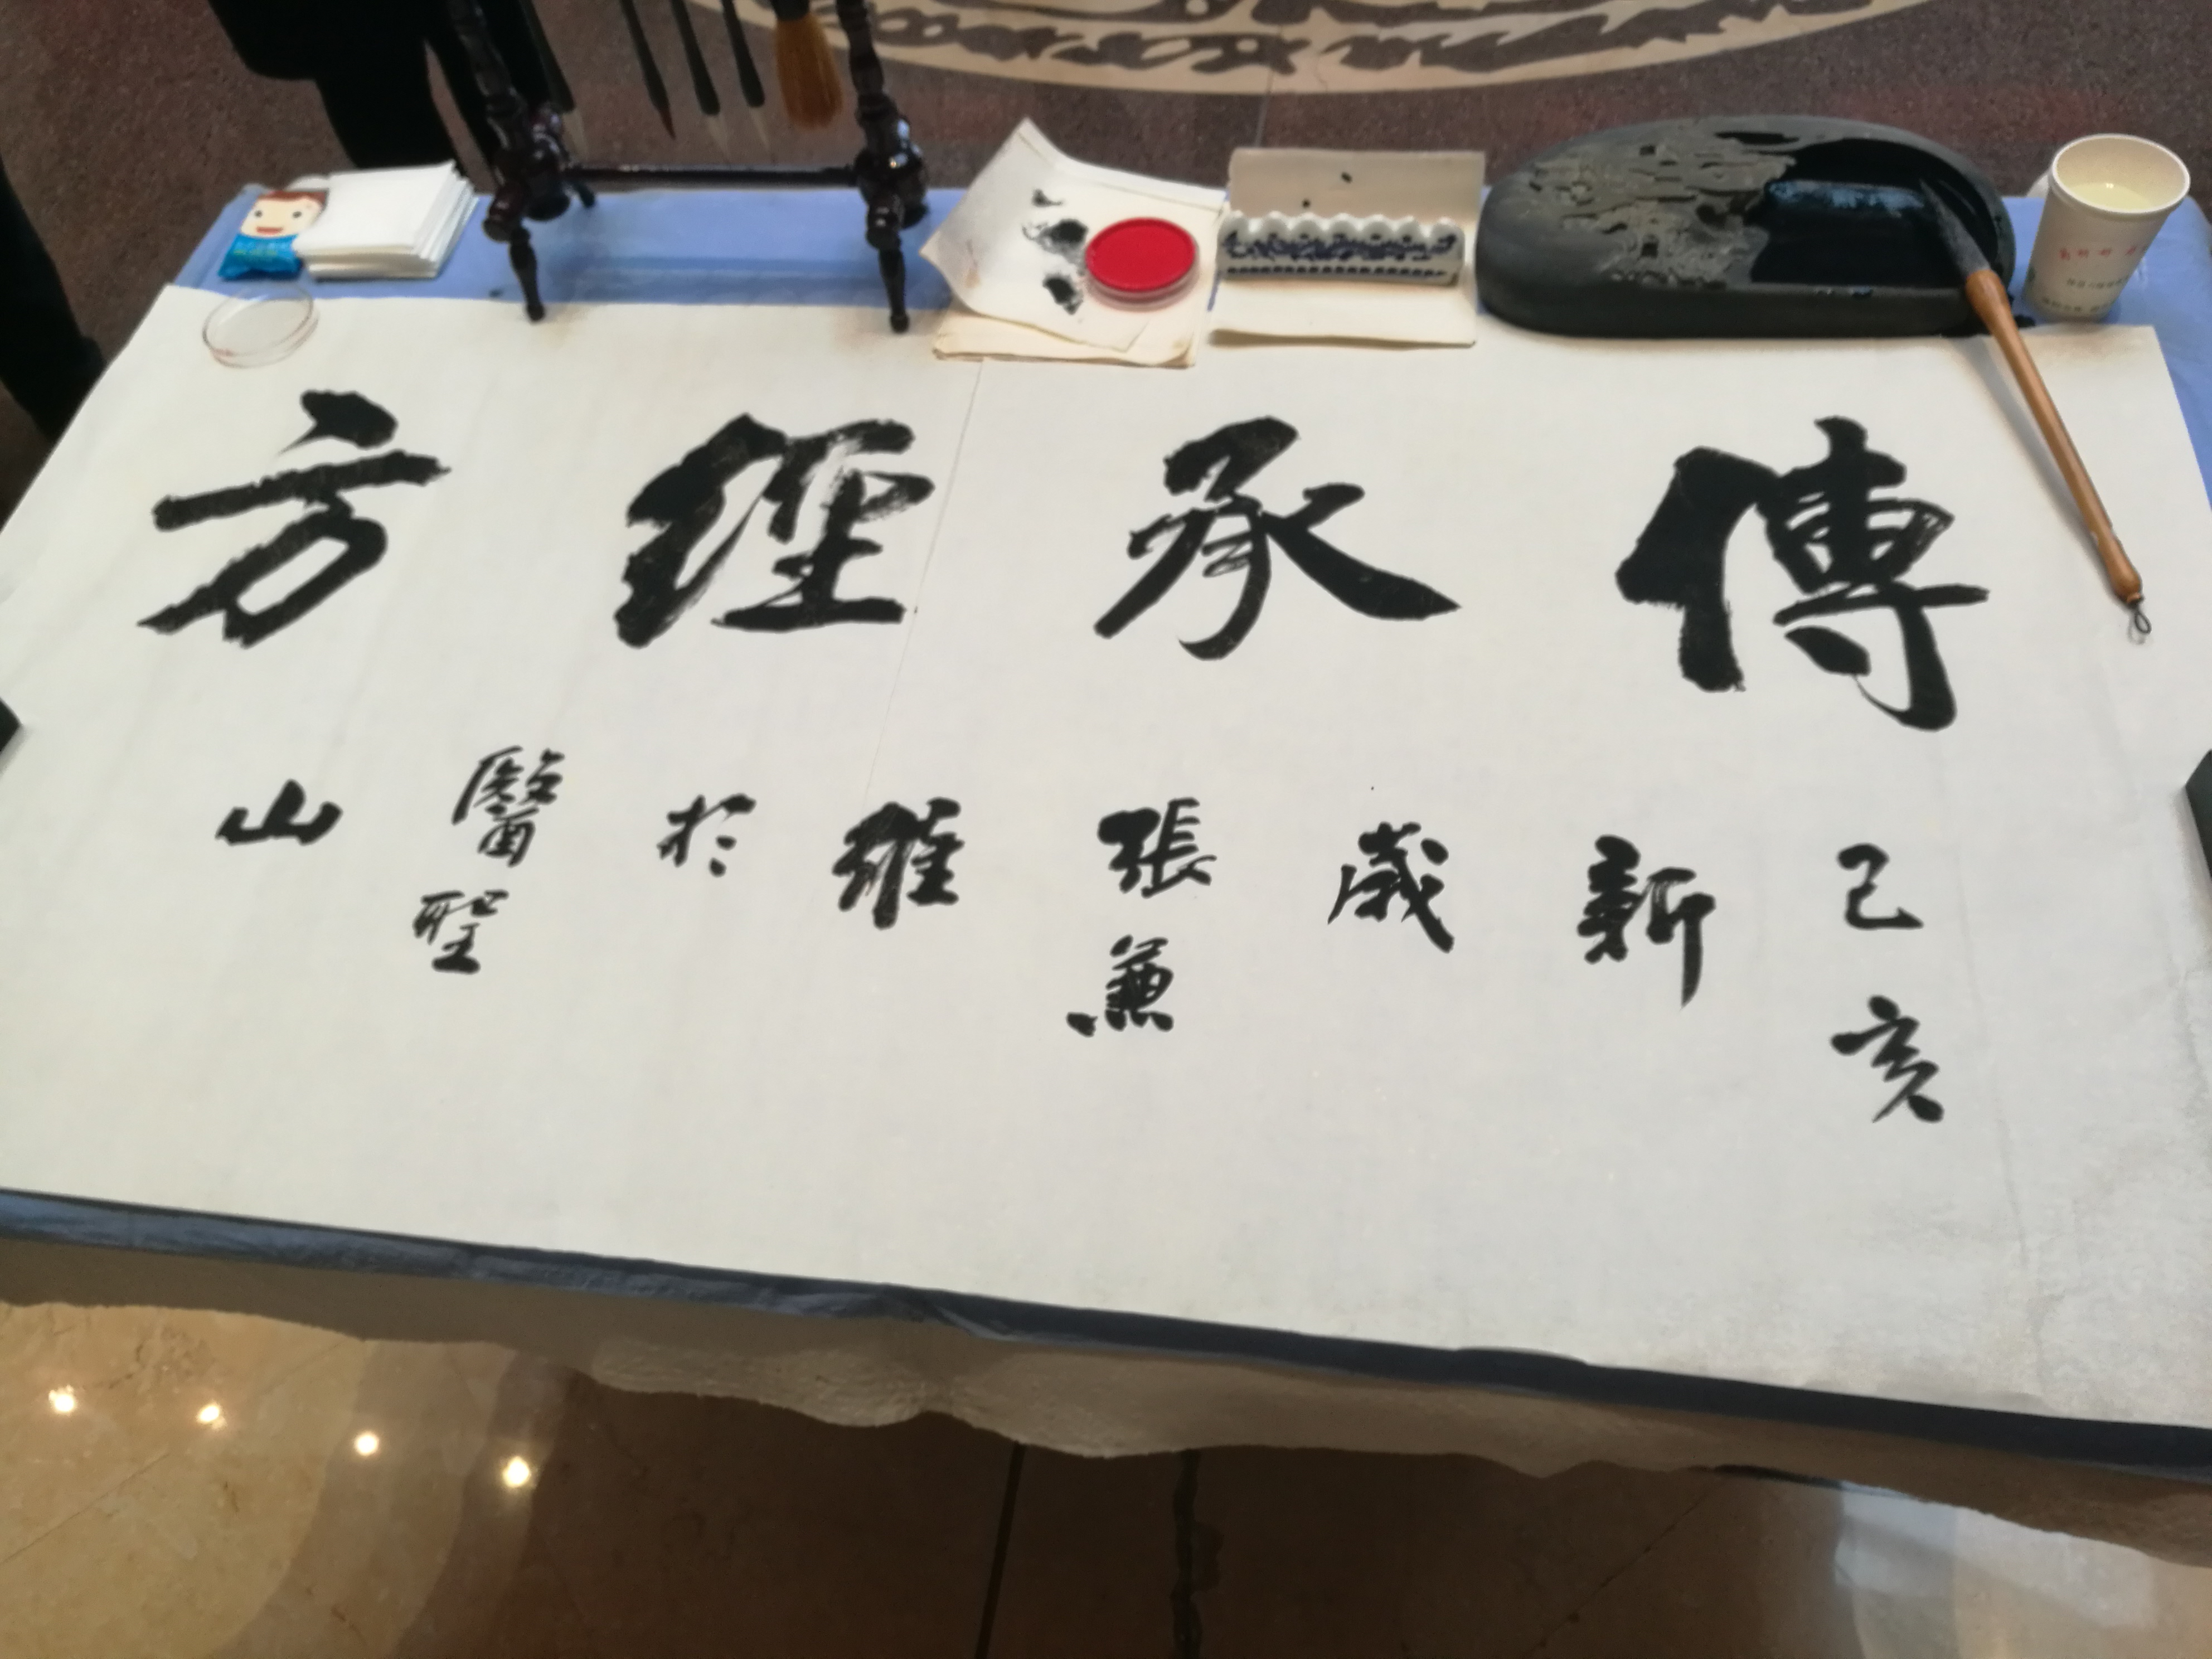 傳承經方
己亥
新
歲
張兼
維
於
醫聖
山